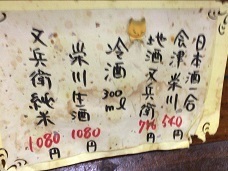 日本酒一合
会津 栄川 540円
地酒 又兵衛 756円
冷酒 300ml
栄川 生酒 1080円
又兵衛 純米 1080円